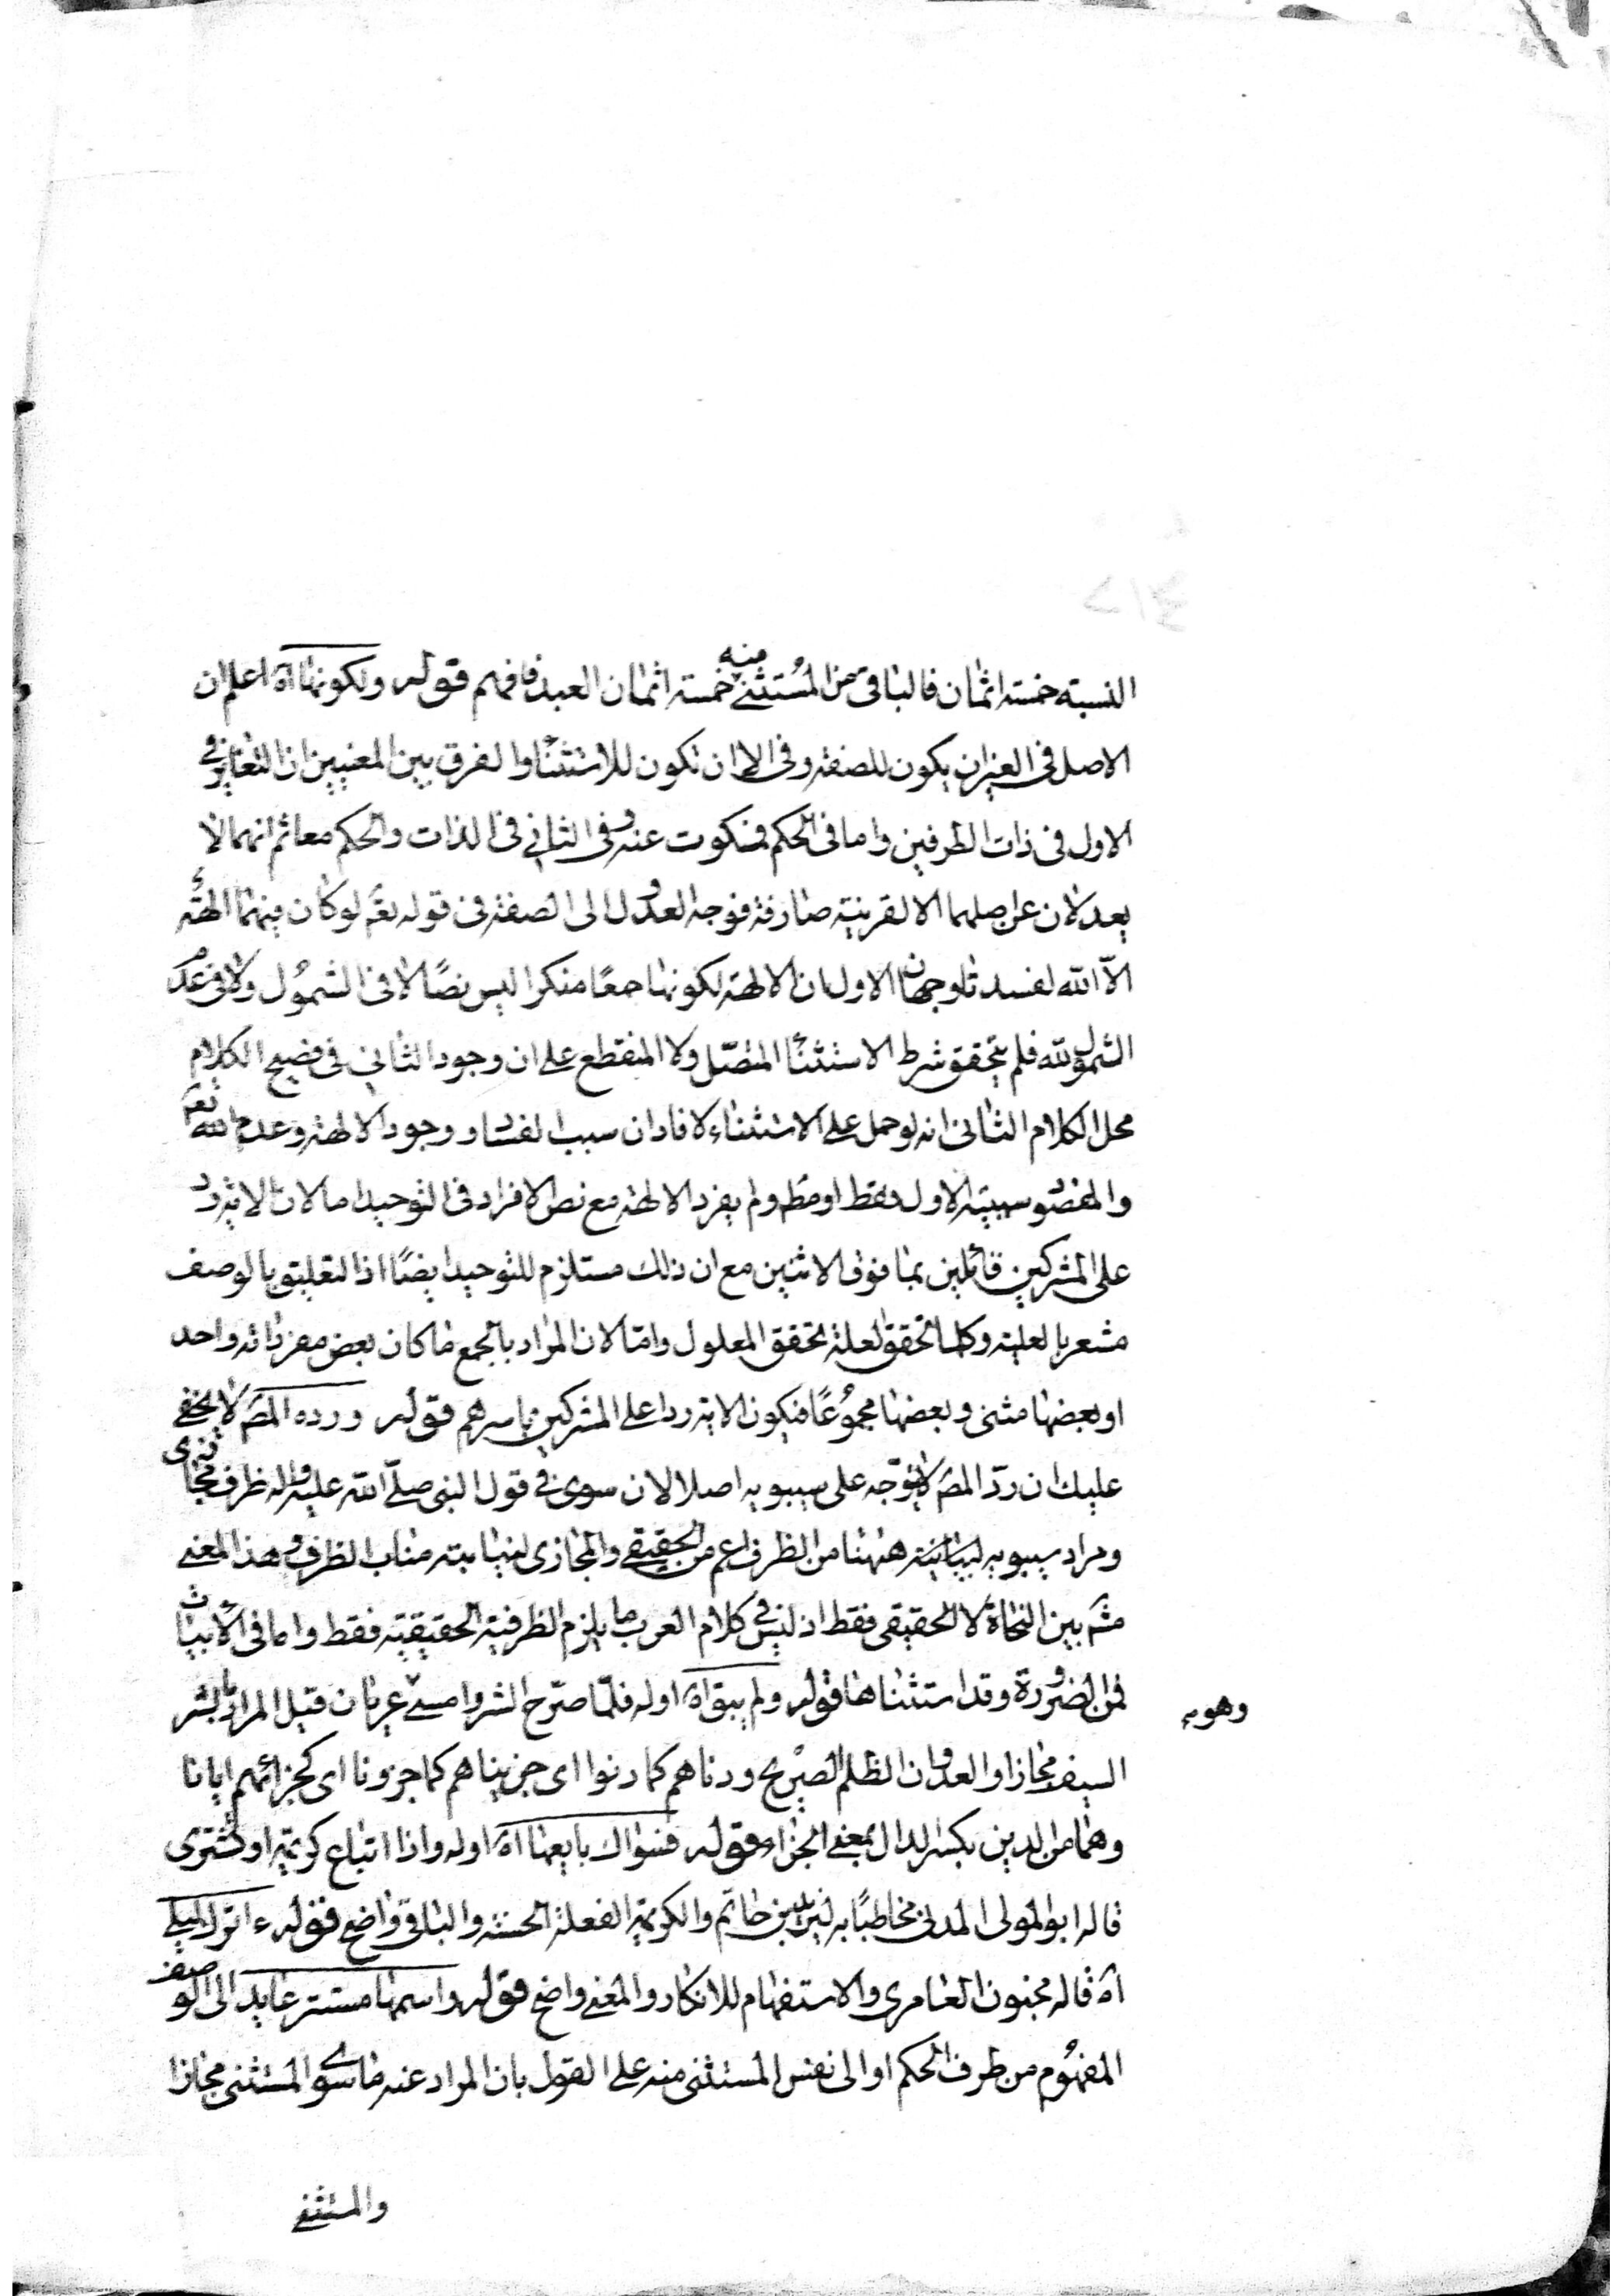 النسبة خمسة اثمان فالباقى من المستثنى منه خمسة اثمان العبد فافهم قوله ولكونها آه اعلم ان
الاصل فى الغير ان يكون للصفة وفى الا ان تكون للاستثناء والفرق بين المعنيين ان التغاير فى
الاول فى ذات الطرفين واما فى الحكم فمسكوت عنه وفى الثانى فى الذات والحكم معا ثم انهما لا
يعدلان عن اصلهما الا لقرينة صارفة فوجه العدول الى الصفة فى قوله تعم لو كان فيهما الهة
الا الله لفسدتا وجهان الاول ان الالهة لكونها جمعًا منكرا ليس نصًا لا فى الشمول ولا فى عدم
الشمول لله فلم يتحقق شرط الاستثناء المتصل ولا المنقطع على ان وجود الثانى فى فصيح الكلام
محل الكلام الثانى انه لو حمل على الاستثناء لافاد ان سبب الفساد وجود الالهة وعدم الله تعم
والمقصود سببية الاول فقط او مطم ولم يفرد الالهة مع نص الافراد فى التوحيد اما لان الاية رد
على المشركين قائلين بما فوق الاثنين مع ان ذلك مستلزم للتوحيد ايضًا اذ التعليق بالوصف
مشعر بالعلية وكلما تحقق العلة تحقق المعلول واما لان المراد بالجمع ما كان بعض مفرداته واحد
او بعضها مثنى وبعضها مجموعًا فيكون الاية ردا على المشركين باسرهم قوله ورده المصـ لا يخفى
عليك ان رد المصـ لا يتوجه على سيبويه اصلا لان سوى فى قول النبى صلى الله عليه واله ظرف مجازى
ومراد سيبويه ههنا من الظرف اعم من الحقيقى والمجازى لنيابته مناب الظرف وهذا المعنى
بين النحاة لا الحقيقى فقط اذ ليس فى كلام العرب ما يلزم الظرفية الحقيقية فقط واما فى الابيات
فمن الضرورة وقد استثناها قوله ولم يبق آه اوله فلما صرح الشر وامسى عريان قيل المراد بالشر
وهو به
السيف مجازا والعدوان الظلم الصريح ودناهم كما دنوا اى جزيناهم كما جزونا اى كجزائهم ايانا
وهما من الدين بكسر الدال بمعنى الجزاء قوله فسواك بايعها آه اوله واذا تباع كريمة او تشترى
قاله ابو المولى المدنى مخاطبًا به يزيد بن حاتم والكريمة الفعلة الحسنة والباقى واضح قوله ءاترك ليلى
آه قاله مجنون العامرى والاستفهام للانكار والمعنى واضح قوله واسمها مستتر عايد الى الوصف
المفهوم من طرف الحكم او الى نفس المستثنى منه على القول بان المراد عنه ما سوى المستثنى مجازا
والمستثنى